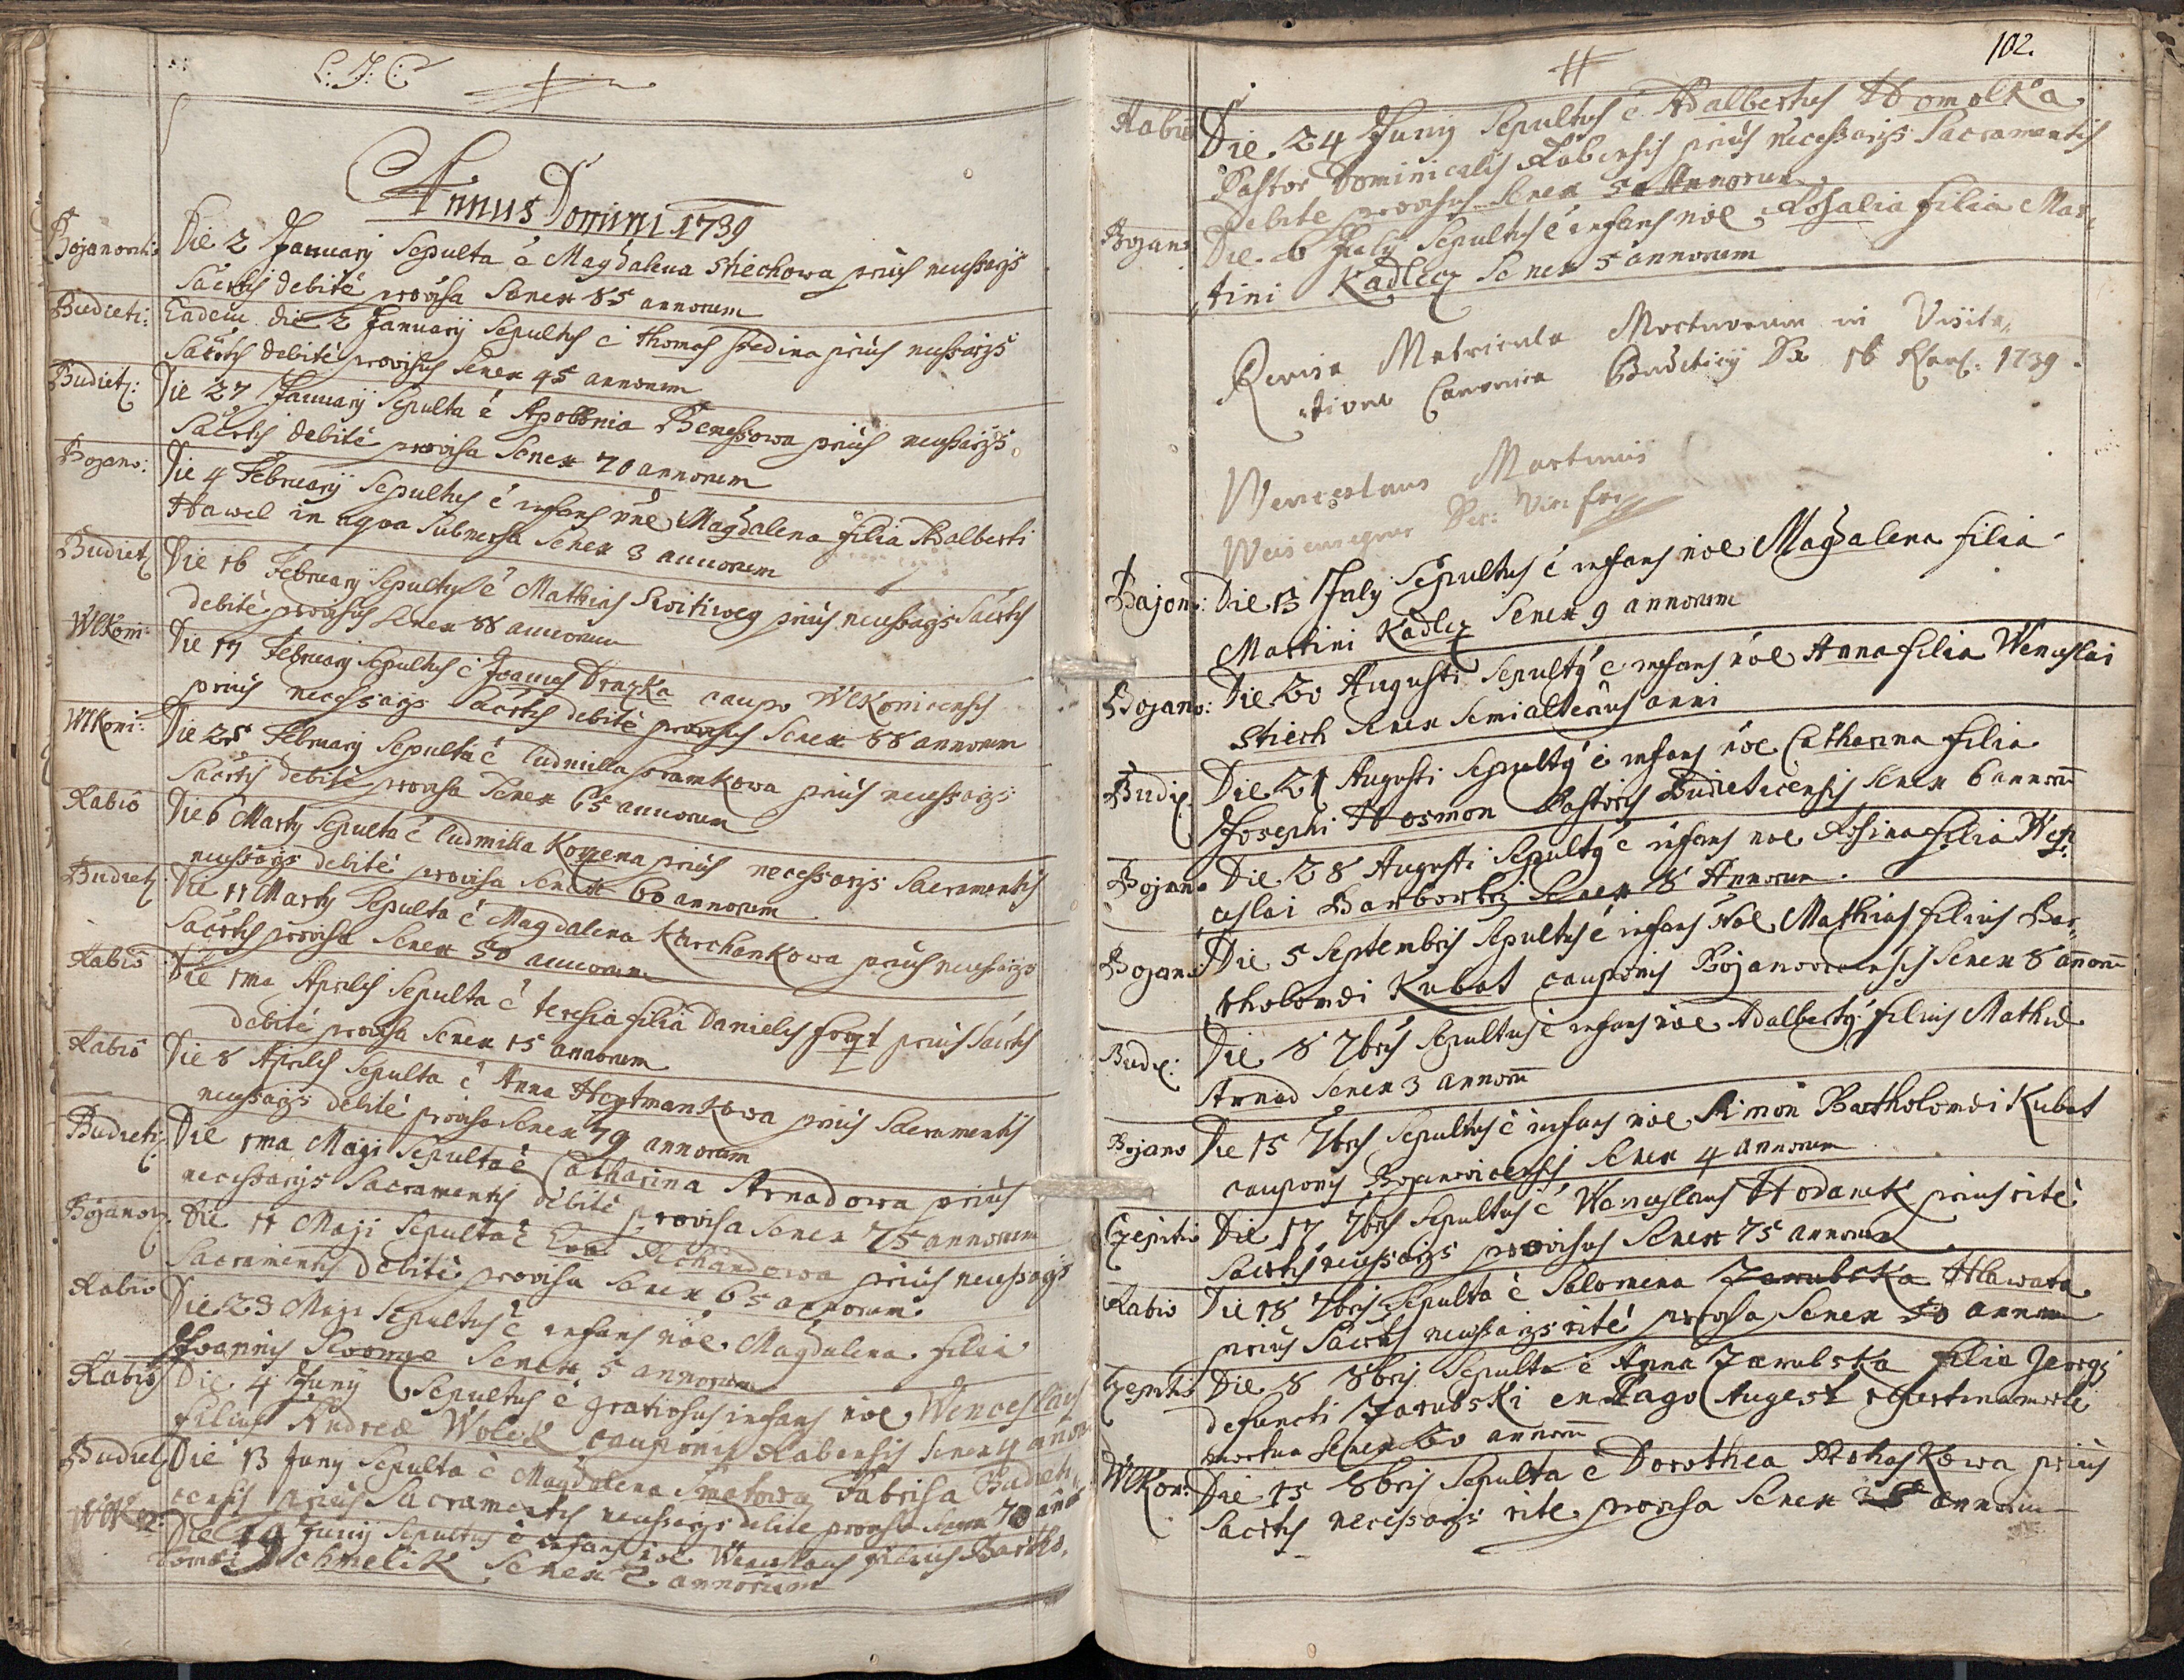 L: J: C
Annus Domini 1739
Bojanovitis Die 2 January Sepulta ē Magdalena Stiechowa prius neceßarijs
Sacrtis debitè provisa Senex 85 annorum
Budieti: Eadem die 2 January Sepultus ē Thomas Ssedina prius neceßarijs
Sacrtis debitè provisus Senex 45 annorum
Budietz: Die 27 January Sepulta ē Apollonia Beneßowa prius neceßarijs
Sacrtis debitè provisa Senex 70 annorum
Bojano: Die 4 February Sepultus ē infans nōe Magdalena filia Adalberti
Hawel in aqua Submersa Senex 3 annorum
Budietz Die 16 February Sepultus ē Mathias Switiweg prius neceßarijs Sacrtis
debitè provisus Senex 88 annorum
Wlkoni: Die 17 February Sepultus ē Joannes Drazka caupo Wlkonicensis
prius necessarijs Sacrtis debitè provisus Senex 88 annorum
Wlkoni: Die 25 February Sepulta ē Ludmilla Sramkowa prius necessarijs
Sacrtis debitè provisa Senex 65 annorum
Rabio Die 6 Marty Sepulta ē Ludmilla Kozena prius necessarijs Sacramentis
neceßarijs debitè provisa Senex 60 annorum
Budietz Die 11 Marty Sepulta ē Magdalena Karchankowa prius neceßarijs
Sacrtis provisa Senex 50 annorum
Rabio Die 1ma Aprilis Sepulta ē teresia filia Danielis prius Sacrtis
debitè provisa Senex 15 annorum
Rabio Die 8 Aprilis Sepulta ē Anna Heytmankowa prius Sacramentis
neceßarijs debitè provisa Senex 79 annorum
Budieti: Die 1ma Maji Sepulta ē Catharina Arnadowa prius
neceßarijs Sacramentis debitè provisa Senex 75 annorum
Bojanow: Die 11 Maji Sepulta ē Eva Richandowa prius neceßarijs
Sacramentis debitè provisa Senex 65 annorum
Rabio Die 23 Maji Sepultus ē infans nōe Magdalena filia
Joannis Senex 5 annorum
Rabio Die 4 Juny Sepultus ē gratiosus infans nōe Wenceslaus
filius Andreæ Wolek cauponis Rabensis Senex 4 annor
Budietz Die 13 Juny Sepulta ē Magdalena Smatowa Fabrissa Budieti,
censis prius Sacramentis neceßarijs debite provisa Senex 70 anor
Wlko: Die 19 Juny Sepultus ē infans nōe Wenceslaus filius Bartho,
lomæi Chmelik Senex 2 annorum
102.
Rabio Die 24 Juny Sepultus ē Adalbertus Homolka
Pastor Dominicalis Rabensis prius neceßarijs Sacramentis
debite provisus Senex 50 Annorum
Bojano Die 6 July Sepultus ē infans nōe Rosalia filia Mar,
tini Kadlecz Senex 5 annorum
Revisa Matricula Mortuorum in Visita,
tione Canonica Budieticy Die 16 1739.
Wenceslaus Martinus
Vic: For
Bajono: Die 13 July Sepultus ē infans nōe Magdalena filia
Martini Kadlez Senex 9 annorum
Bojano: Die 20 Augusti Sepulty ē infans nōe Anna filia Wenceslai
Stiech Senex Semialterius anni
Budiz Die 21 Augusti Sepulty ē infans nōe Catharina filia
Josephi Hosmon Pastoris Budieticensis Senex 6 annorū
Bojano Die 28 Augusti Sepulty ē infans nōe Rosina filia Wen,
ceslai Senex 8 Annorum.
Bojano: Die 5 Septembris Sepultus ē infans Nōe Mathias filius Bar,
tholomæi Kubat cauponis Bojanovicensis Senex 8 anorū
Budz: Die 8 7bris Sepultus ē infans nōe Adalberty filius Mathiæ
Arnad Senex 3 annorū
Bojano Die 15 7bris Sepultus ē infans nōe Simon Bartholomæi Kubat
cauponis Bojanovicensis Senex 4 annorum
Czepitio Die 17 7bris Sepultus ē Wenceslaus Hodanek prius ritè
Sacrtis neceßarijs provisus Senex 75 annorum
Rabio Die 18 7bris Sepulta ē Salomena Jarubska Hlawata
prius Sacrtis neceßarijs ritè provisa Senex 50 annorum
Czepitio Die 8 8bris Sepulta ē Anna Jarubska filia Georgij
defuncti Jarubski en Pago Augest repertina morte
mortua Senex 20 annorū
Wlkon: Die 15 8bris Sepulta ē Dorothea prius
Sacrtis necessarijs rite provisa Senex annorum